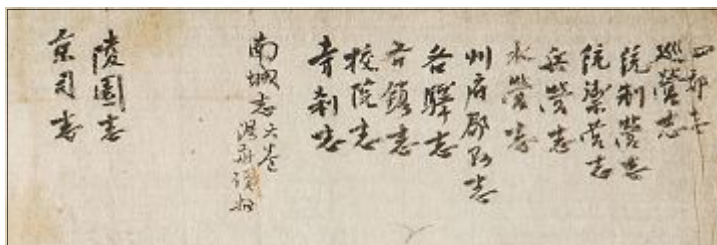 四都志
巡營志
統制營志
統禦營志
兵營志
水營志
州府郡縣志
各驛志
各鎮志
校院志
寺刹志
南城志六卷
陵園志
京司志